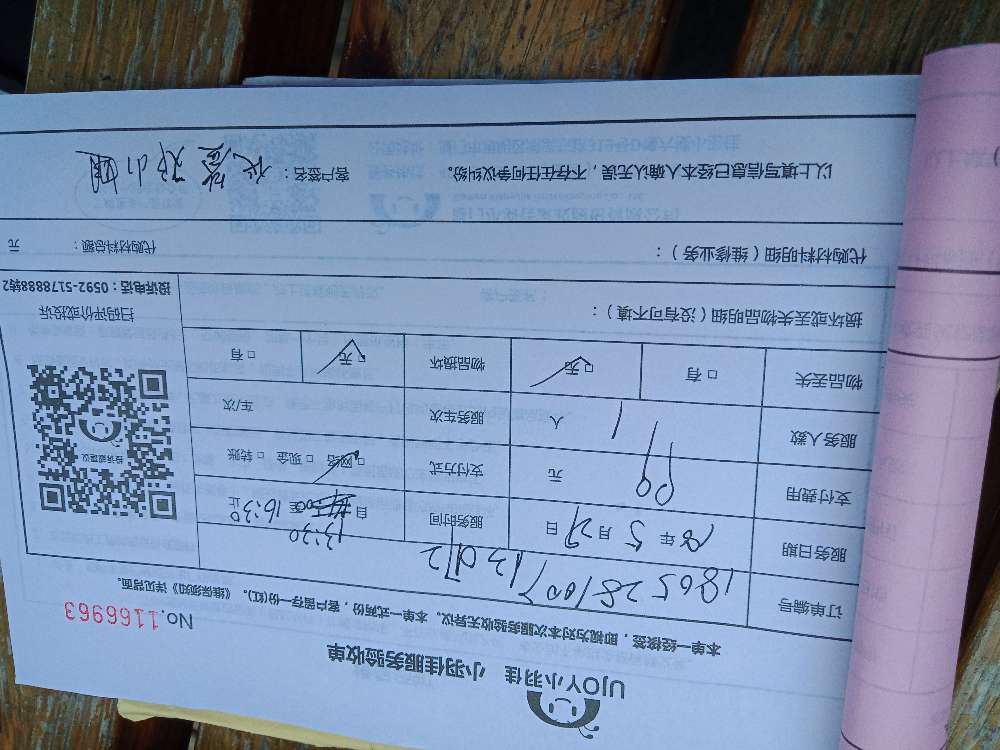 UJOY小羽佳 小羽佳服务验收单
No.1166963
本单一经接签，即视为对本次服务验收无异议。本单一式两份，客户留存一份(红)。《维保须知》详见背面。
订单编号
服务日期 18 年 5 月 29 日 服务时间 自 13:30 至 16:30 止
支付费用 99 元 支付方式 网络 □ 现金 □ 转账
服务人数 1 人 服务车次 车/次
物品丢失 □ 有 □ 无 物品损坏 □ 无 □ 有
损坏或丢失物品明细（没有可不填）：
投诉或建议
扫码评价或投诉
投诉电话：0592-5178888转2
代购材料明细（维修业务）： 代购材料总额： 元
以上填写信息已经本人确认无误，不存在任何争议纠纷。 客户签名：